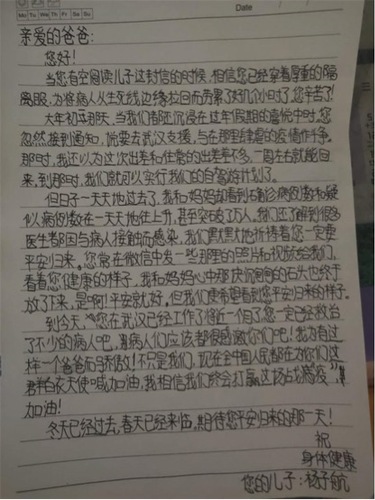 Mo Tu We Th Fr Sa Su
Date
亲爱的爸爸:
您好!
当您有空阅读儿子这封信的时候,相信您已经穿着厚重的隔
离服,为将病人从生死线边缘拉回而劳累了好几个小时了,您辛苦了!
大年初五那天,当我们都还沉浸在这年假期的喜悦中时,您
忽然接到通知,说要去武汉支援,与在那里肆虐的疫情作斗争。
那时,我还以为这次出差和往常的出差差不多,一周左右就能回
来,到那时,我们就可以实行我们的自驾游计划了。
但日子一天天地过去了,我和妈妈却看到确诊病例数和疑
似病例数在一天天地往上升,甚至突破了5万人。我们还了解到很多
医生都因与病人接触而感染,我们默默地祈祷着您一定要
平安归来。您常在微信中发一些那里的照片和视频给我们,
看着您健康的样子,我和妈妈心中那块沉甸甸的石头也终于
放了下来,是啊!平安就好,但我们更希望看到您平安归来的样子。
到今天,您在武汉已经工作了将近一个月了,您一定已经救治
了不少的病人吧,那病人们应该都很感激你们吧!我为有这
样一个爸爸而骄傲!不只是我们,现在全中国人民都在为你们这
群白衣天使喊加油,我相信我们终会打赢这场战"疫"!
加油!
冬天已经过去,春天已经来临,期待您平安归来的那一天!
祝
身体健康
您的儿子:杨子航